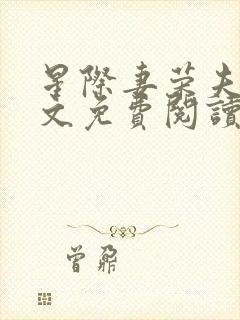 星際妻荣夫
文免費閱讀
曾鼐